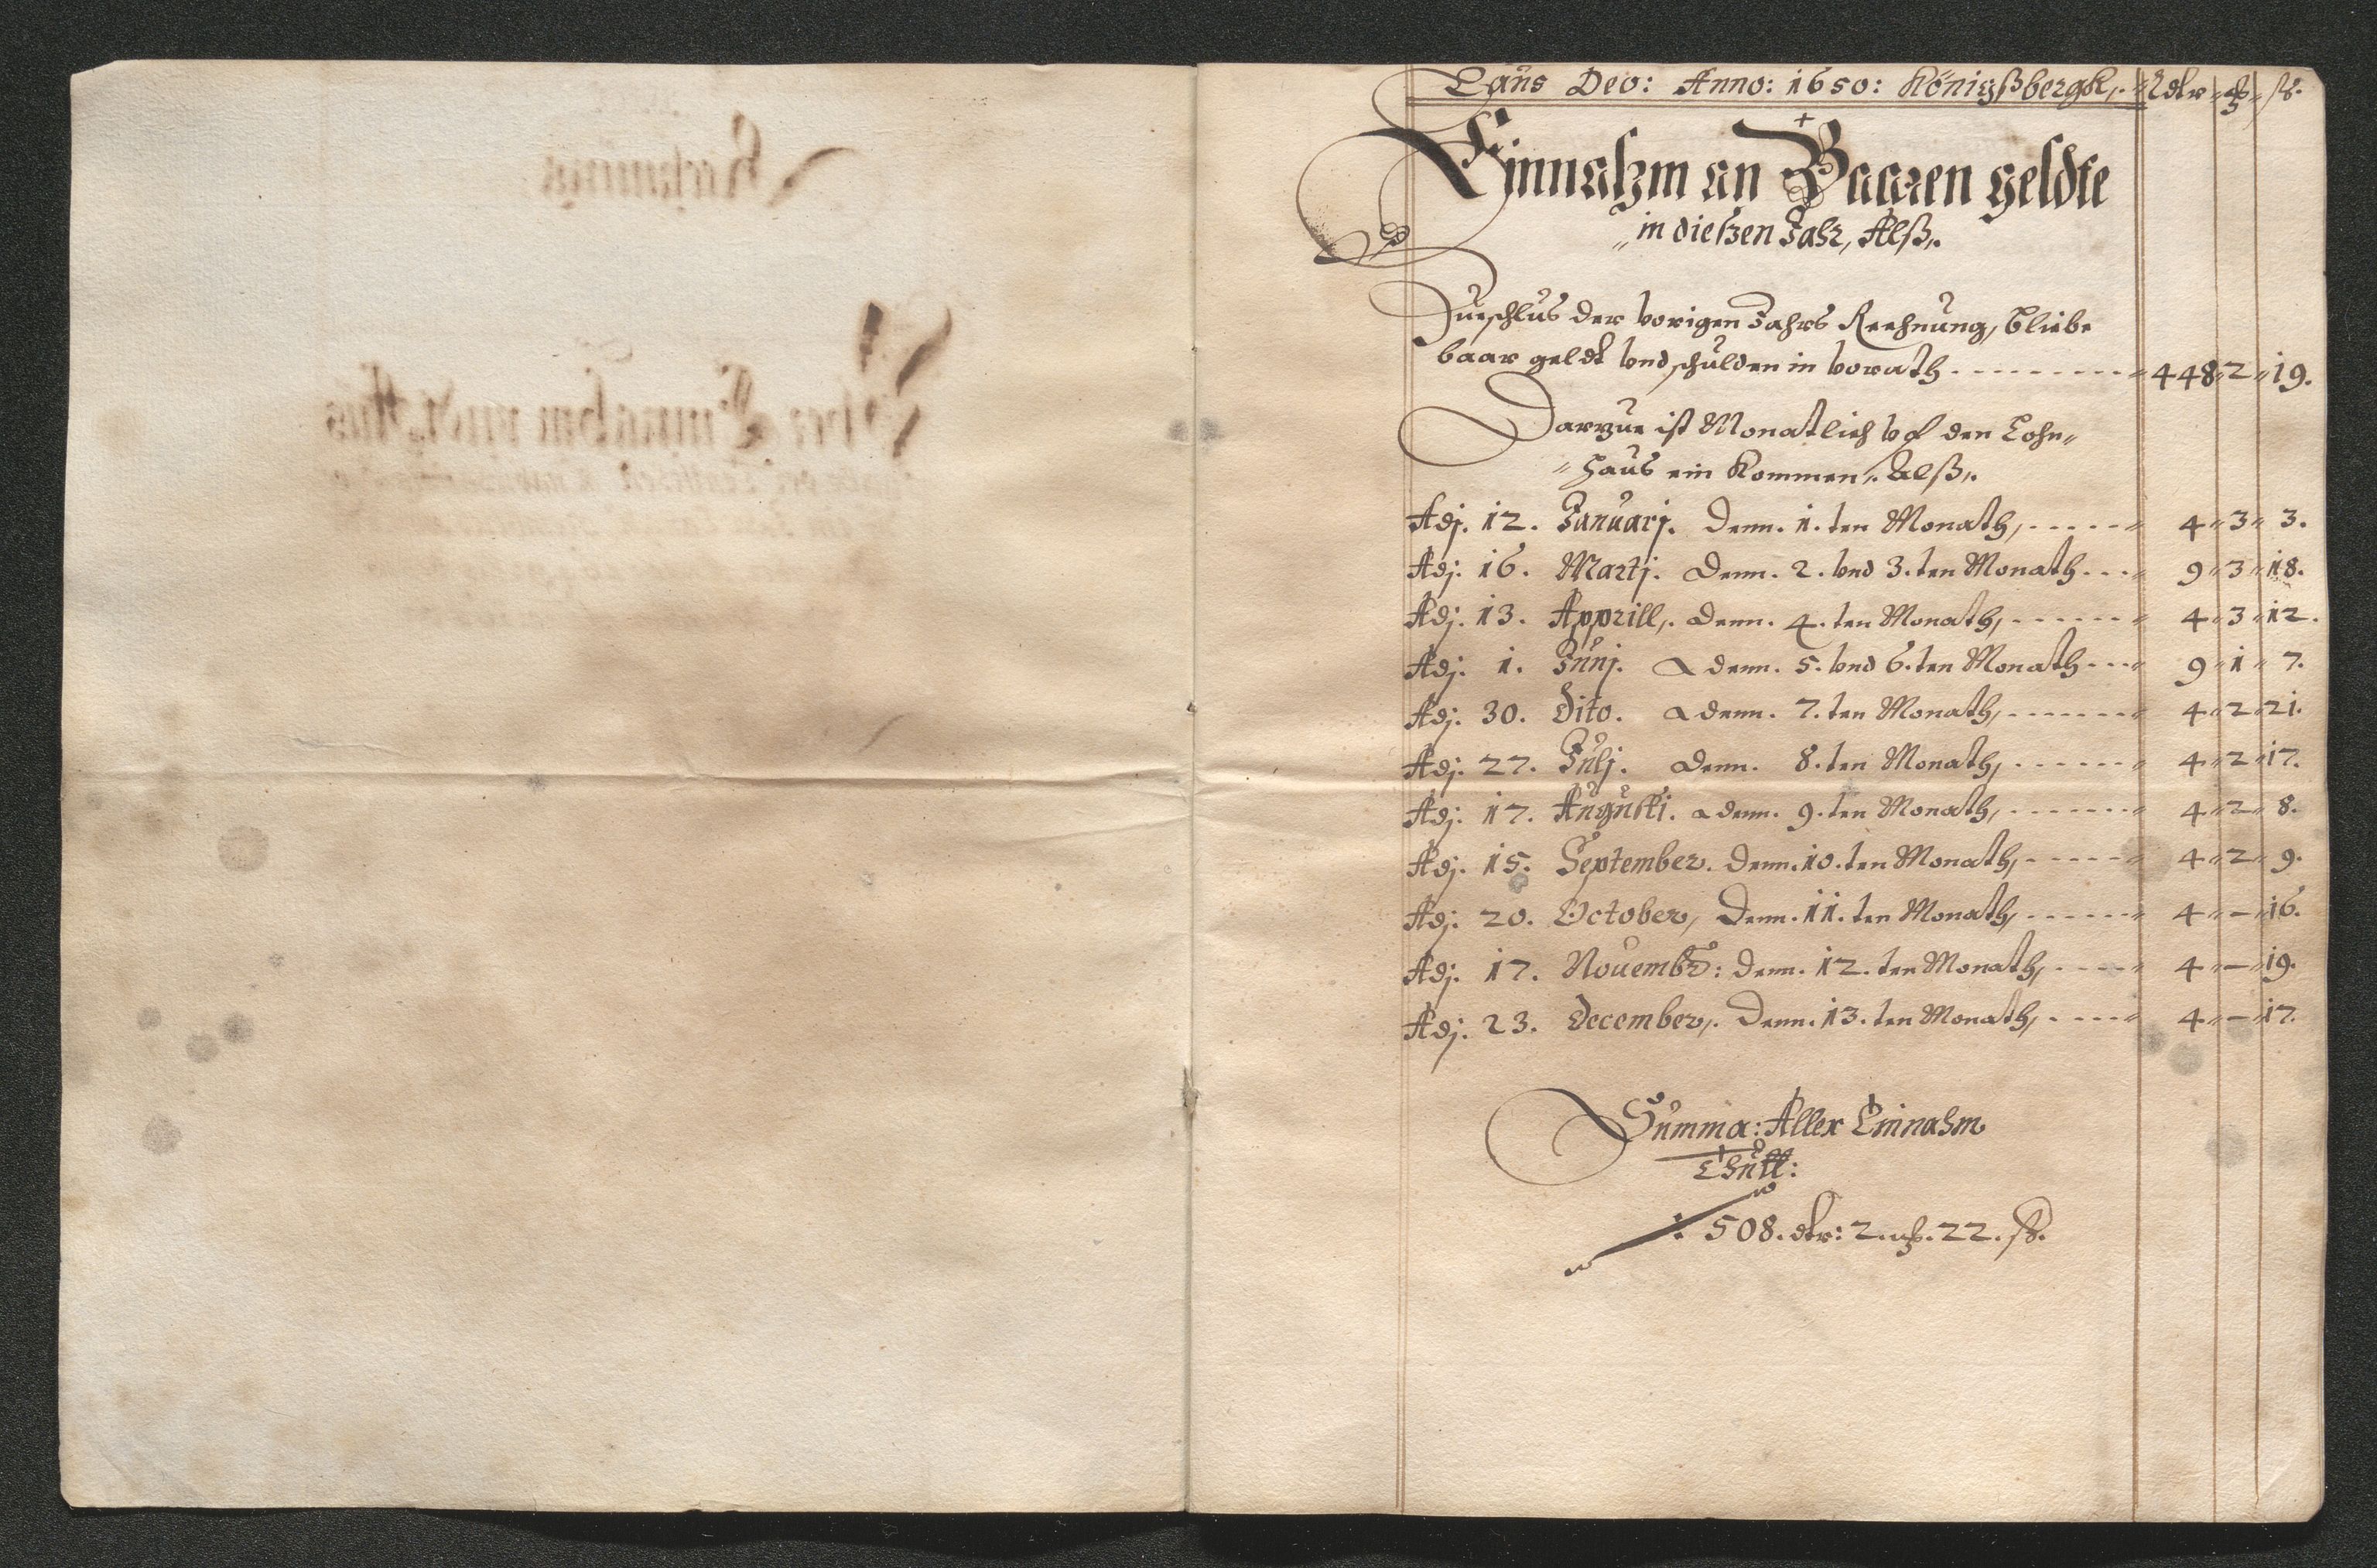 Laus Deo: Anno: 1650: Königßbergk,. Rdlr ß.
Einnahm an Baaren geldte
in dießen Jahr, Alß,.
Zueschlus der vorigen Jahrs Rechnung, bliebe
baar geldt vnd schulden in vorath - - - - - - - - - 448 2 19.
Darzue ist Monatlich vf den Lohn
haus ein kommen,. Alß,.
Adj. 12. Januarj. Denn. 1. ten Monath, - - - - - 4 3 3.
Adj. 16. Martj. Denn. 2. vnd 3. ten Monath - - - 9 3 18.
Adj. 13. Apprill,. Denn. 4. ten Monath, - - - - - - 4 3 12.
Adj. 1. Junj. Denn. 5. vnd 6. ten Monath - - - 9 1 7.
Adj. 30. Dito. Denn. 7. ten Monath, - - - - - - - 4 2 21.
Adj. 27. Julj. Denn. 8. ten Monath, - - - - - - 4 2 17.
Adj. 17. Augusti. Denn. 9. ten Monath, - - - - - - - 4 2 8.
Adj. 15. September. Denn. 10. ten Monath, - - - - - 4 2 9.
Adj. 20. October, Denn. 11. ten Monath, - - - - - - 4 — 16.
Adj. 17. Nouembr: Denn. 12. ten Monath, - - - - 4 — 19.
Adj. 23. December,. Denn. 13. ten Monath, - - - - 4 — 17.
Summa: Aller Einnahm
Thutt:
508. dlr: 2. 22. ß.